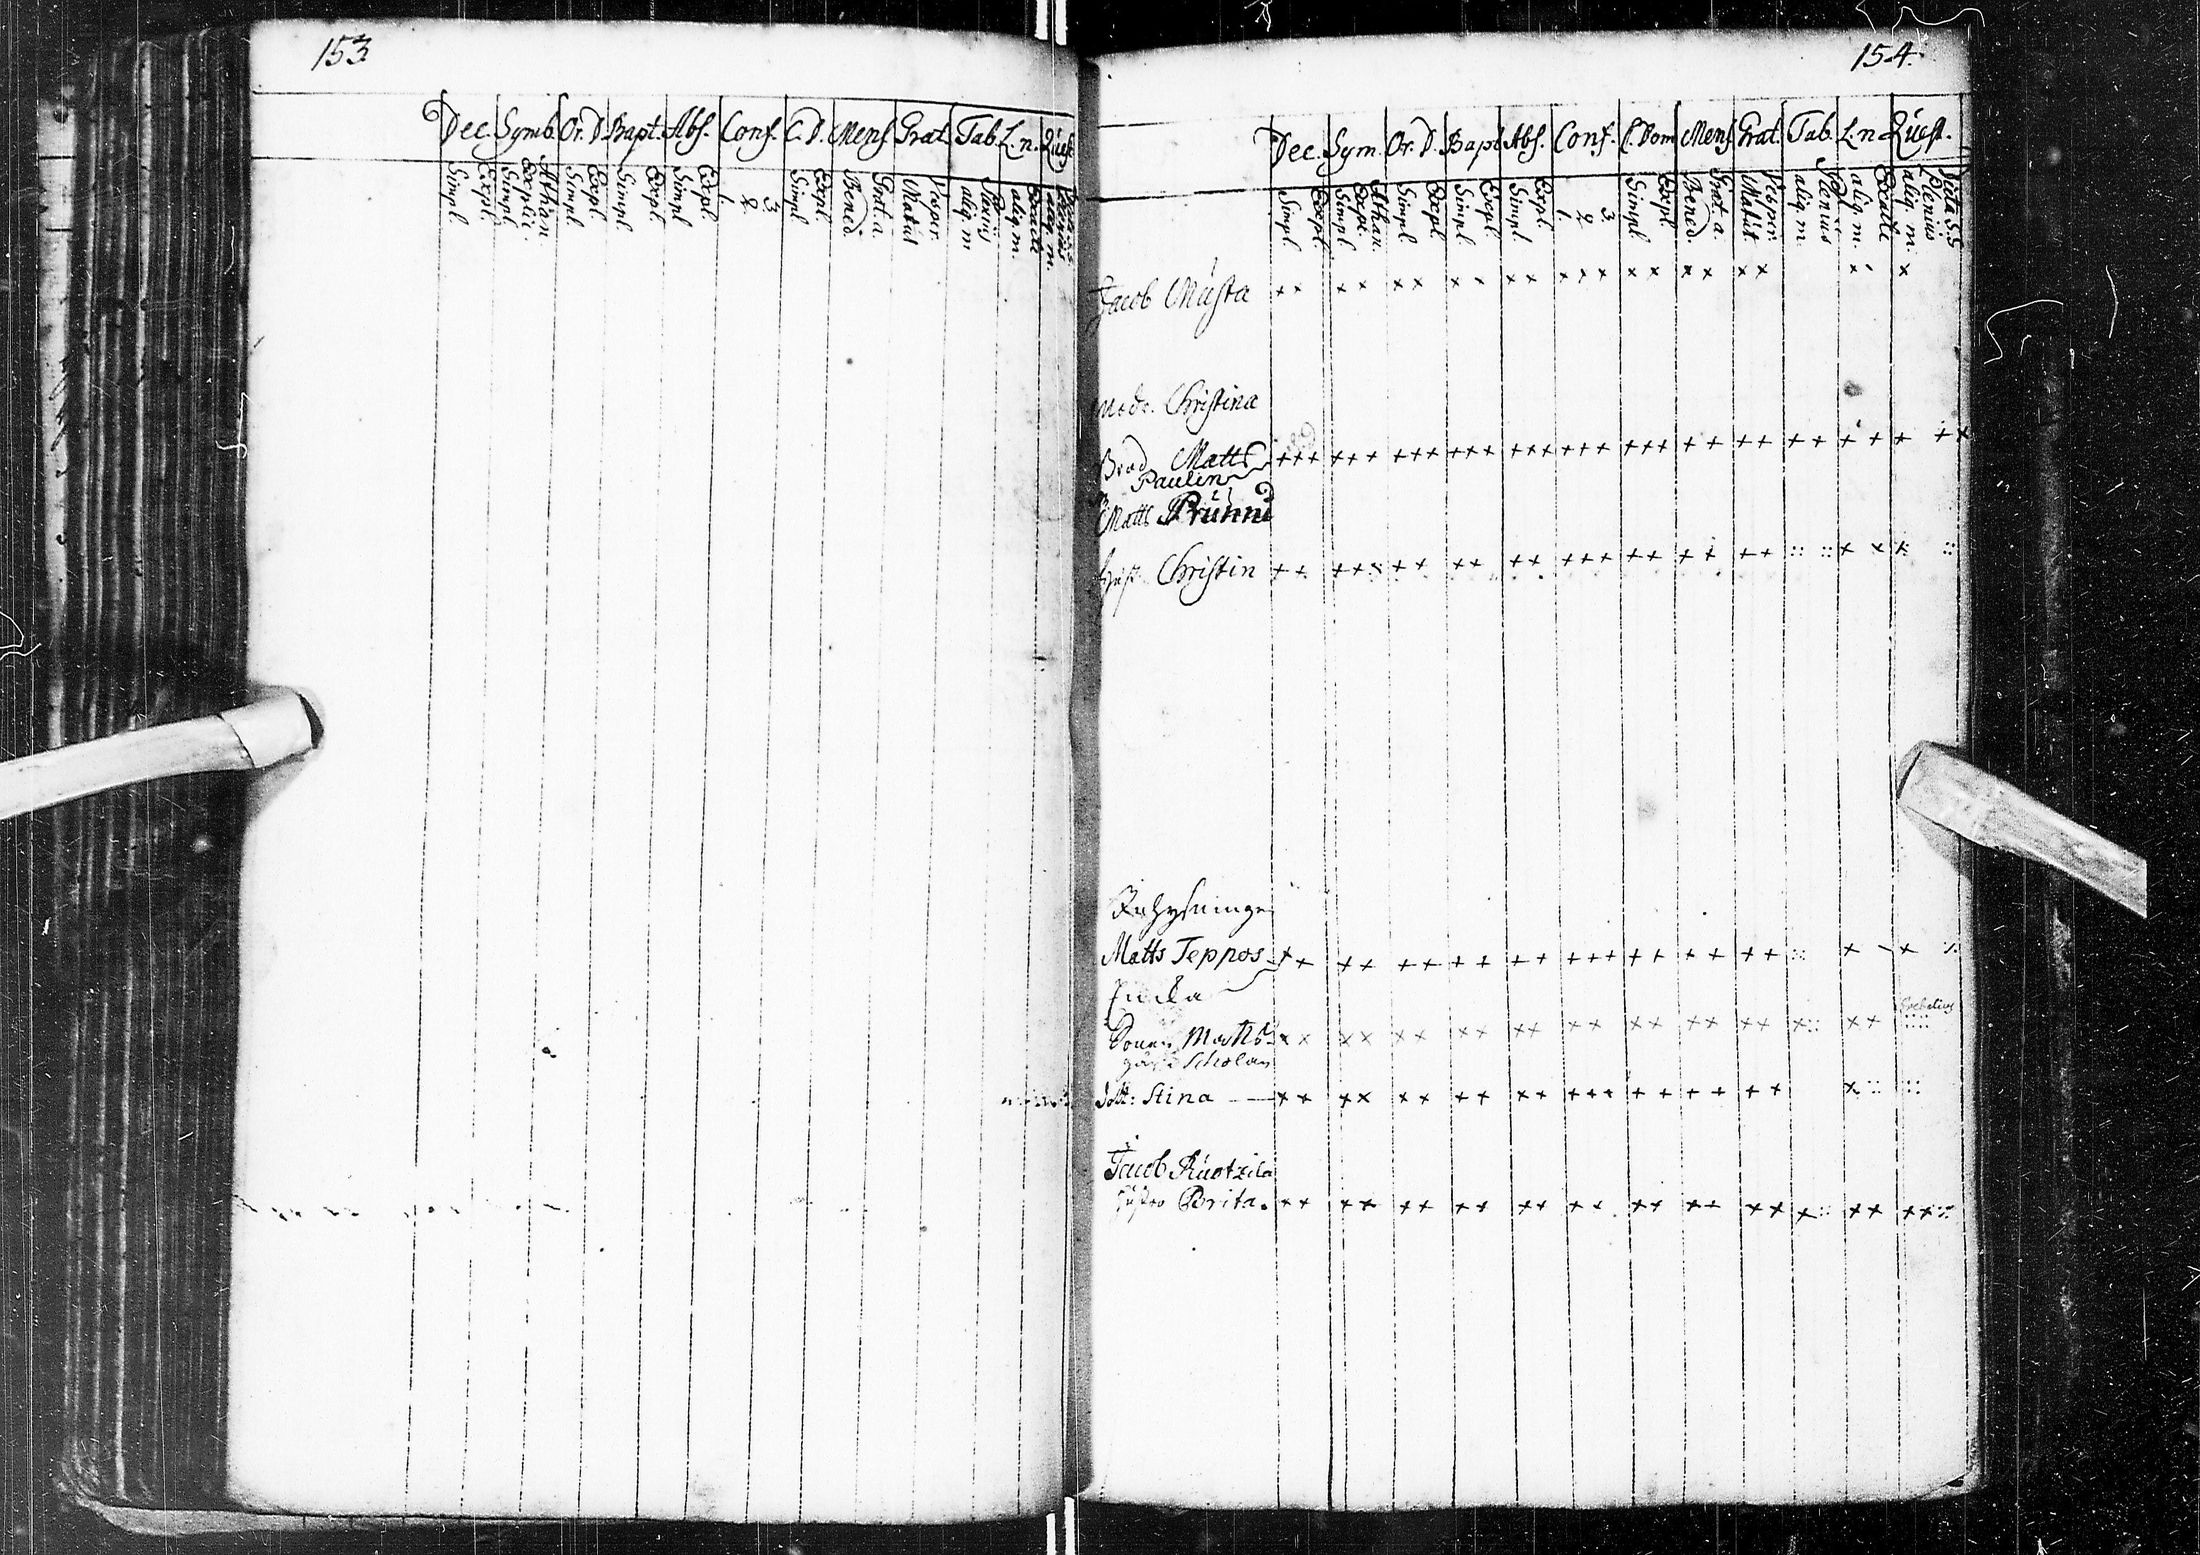 153
Dec. Symb. Or. D. Bapt. Abs. Conf. C. D. Mens. Grat. Tab. L. n. Quest.
Simpl. Expl. Simpl. Explic. Athan. Simpl. Expl. Simpl. Expl. Simpl. Expl. 1. 2 3. Simpl. Expl. Bened. Grat. a. Matut Vesper. aliq. m. Plenius aliq. m. Exacte aliq. m. Plenius
154.
Dec. Sym. Or. D. Bapt. Abs. Conf. C. Dom Mens. Grat. Tab. L. n Quest.
Simpl. Expl. Simpl. Expl. Athan. Simpl. Expl. Simpl. Expl. Simpl. Expl. 1. 2 3. Simpl. Expl. Bened. Grat. a. Matut. Vesper. aliq. m. Plenius aliq. m. Exacte aliq. m. Plenius Dicta S. S
Jacob Musta ×× ×× ×× ×× ×× ××× ×× ×× ×× × ×
Mod. Christina
Brod Matts +++ +++ +++ +++ +++ +++ +++ ++ ++ ++ +++ + ++
Paulin
Matts Pruhn
Hust. Christin ++ +++ ++ ++ ++ +++ ++ ++ ++ :: :: + ×× ::
Matts Teppos ++ ++ ++ ++ ++ +++ ++ ++ ++ :: + + 
Matts ×× ×× ×× ×× ×× ×× ×× ×× ×× ×:: ×× ::::
Scholan
dott: Stina ++ ++ ++ ++ ++ +++ ++ ++ ++ × :: ::
Jacob
hustro Brita. ++ ++ ++ ++ ++ ++ ++ ++ ++ +:: ++ ++